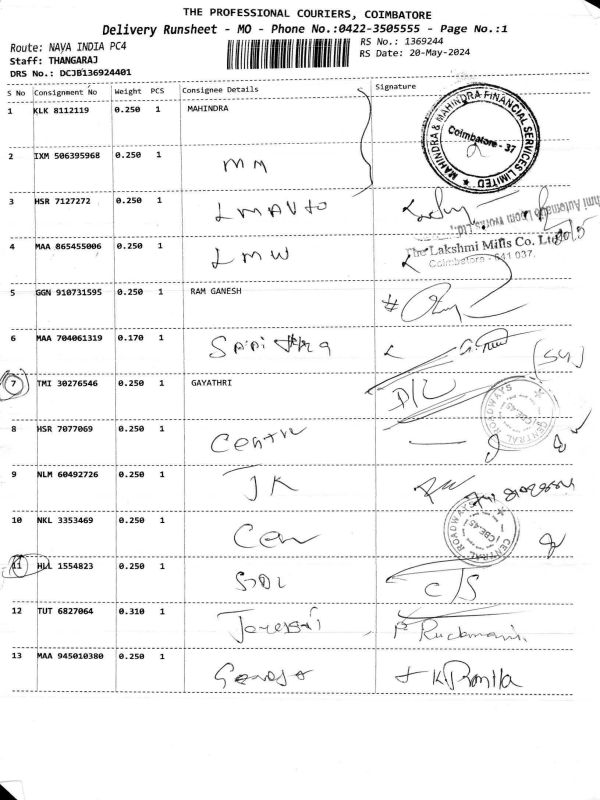 THE PROFESSIONAL COURIERS, COIMBATORE
Delivery Runsheet - MO - Phone No.:0422-3505555 - Page No.:1
Route: NAVA INDIA PC4
Staff: THANGARAJ
DRS No.: DCJB136924401
RS No.: 1369244
RS Date: 20-May-2024
S No Consignment No Weight PCS Consignee Details Signature
1 KLK 8112119 0.250 1 MAHINDRA
MAHINDRA & MAHINDRA FINANCIAL SERVICES LIMITED ★
Coimbatore - 37
2 IXM 506395968 0.250 1 MM
3 HSR 7127272 0.250 1 LM AUTO
4 MAA 865455006 0.250 1 LMW
The Lakshmi Mills Co. Ltd
Coimbatore - 641 037.
5 GGN 910731595 0.250 1 RAM GANESH
6 MAA 704061319 0.170 1
7 TMI 30276546 0.250 1 GAYATHRI D/L
8 HSR 7077069 0.250 1 Centre
CENTRAL ROADWAYS CBE-45
9 NLM 60492726 0.250 1 JK
10 NKL 3353469 0.250 1 Cen
CENTRAL ROADWAYS CBE-45
11 HLL 1554823 0.250 1 C/S
12 TUT 6827064 0.310 1 P. Ruckmani
13 MAA 945010380 0.250 1